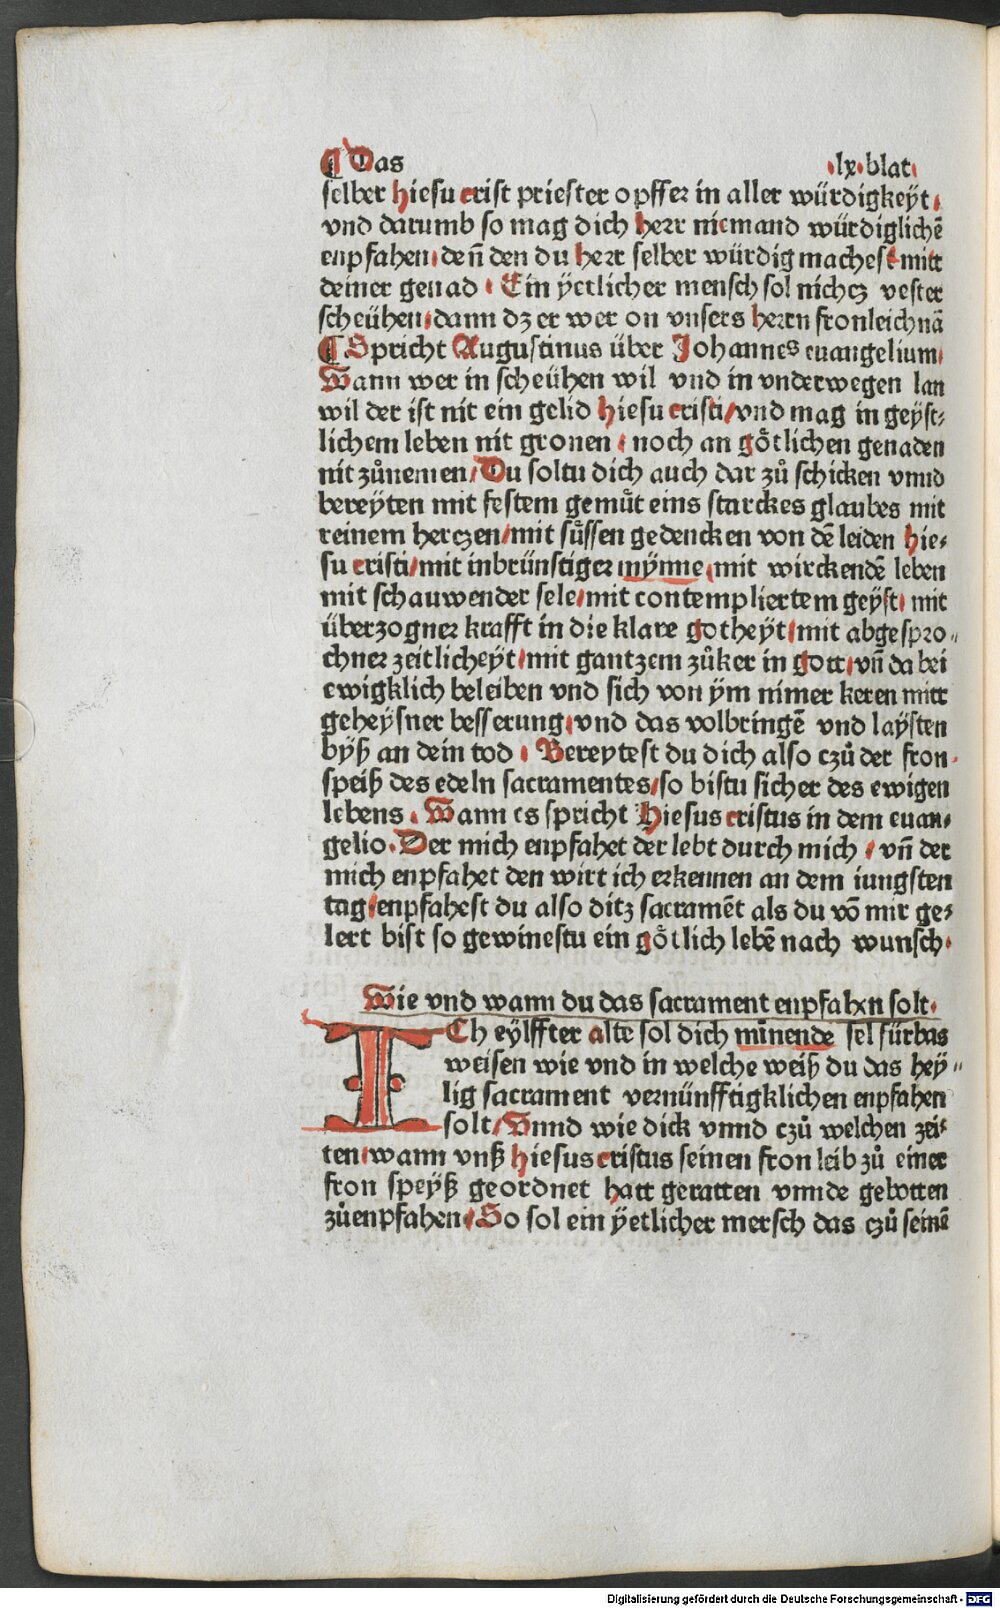 ¶ Das ·lx·blat·
selber hiesu crist priester opffer in aller würdigkeyt·
vnd darumb so mag dich herr niemand würdiglichē
enpfahen·deñ den du herr selber würdig machest mitt
deiner genad · Ein ÿetlicher mensch sol nichcz vester
scheühen·dann dz er wer on vnsers herrn fronleichnā
¶ Spricht Augustinus über Johannes euangelium·
Wann wer in scheühen wil vnd in vnderwegen lan
wil der ist nit ein gelid hiesu cristi/vnd mag in geÿst⸗
lichem leben nit gronen · noch an goͤtlichen genaden
nit zůnemen/Du soltu dich auch dar zů schicken vnnd
bereÿten mit festem gemuͤt eins starckes glaubes mit
reinem herczen/mit suͤssen gedencken von dē leiden hie⸗
su cristi/mit inbrünstiger mÿnne/mit wirckendē leben
mit schauwender sele/mit contempliertem geÿst· mit
überzogner krafft in die klare gotheÿt/mit abgespro⸗
chner zeitlicheÿt/mit gantzem zůker in gott/vñ da bei
ewigklich beleiben vnd sich von ÿm nimer keren mitt
geheÿsner besserung/vnd das volbringē vnd laÿsten
bÿß an dein tod · Bereytest du dich also czů der fron⸗
speiß des edeln sacramentes/so bistu sicher des ewigen
lebens · Wann es spricht Hiesus cristus in dem euan⸗
gelio·Der mich enpfahet der lebt durch mich / vñ der
mich enpfahet den wirt ich erkennen an dem iungsten
tag/enpfahest du also ditz sacramēt als du vō mir ge⸗
lert bist so gewinestu ein goͤtlich lebē nach wunsch·
Wie vnd wann du das sacrament enpfahxn solt·
Ich eÿlffter alte sol dich minende sel fürbas
weisen wie vnd in welche weiß du das heÿ⸗
lig sacrament vernünfftigklichen enpfahen
solt/Vnnd wie dick vnnd czů welchen zei⸗
ten·wann vnß hiesus cristus seinen fron leib zů einer
fron speÿß geordnet hatt geratten vnnde gebotten
zůenpfahen/So sol ein ÿetlicher mersch das czů seinē
Digitalisierung gefördert durch die Deutsche Forschungsgemeinschaft - DFG